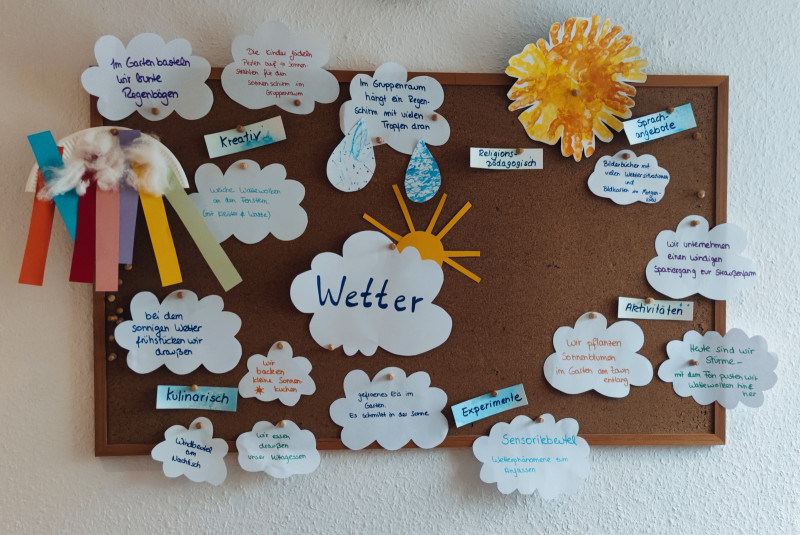 Im Garten basteln
wir bunte
Regenbögen
Die Kinder fädeln
Perlen auf → Sonnen-
strahlen für den
Sonnenschirm im
Gruppenraum
Im Gruppenraum
hängt ein Regen-
schirm mit vielen
Tropfen dran
Kreativ
Weiche Wattewolken
an den Fenstern.
(mit Kleister & Watte)
Religions-
pädagogisch
Sprach-
angebote
Bilderbücher mit
vielen Wettersituationen
und
Bildkarten im Morgen-
kreis
Wir unternehmen
einen windigen
Spaziergang zur Straußenfarm
Wetter
Aktivitäten
bei dem
sonnigen Wetter
frühstücken wir
draußen
Wir
backen
kleine Sonnen-
kuchen
Wir pflanzen
Sonnenblumen
im Garten am Zaun
entlang
Heute sind wir
Stürme-
mit dem Fön pusten wir
Wattewolken hin &
her
Kulinarisch
gefrorenes Eis im
Garten.
Es schmilzt in der Sonne
Experimente
Windbeutel
zum
Nachtisch
Wir essen
draußen
unser Mittagessen
Sensorikbeutel
Wetterphänomene zum
anfassen